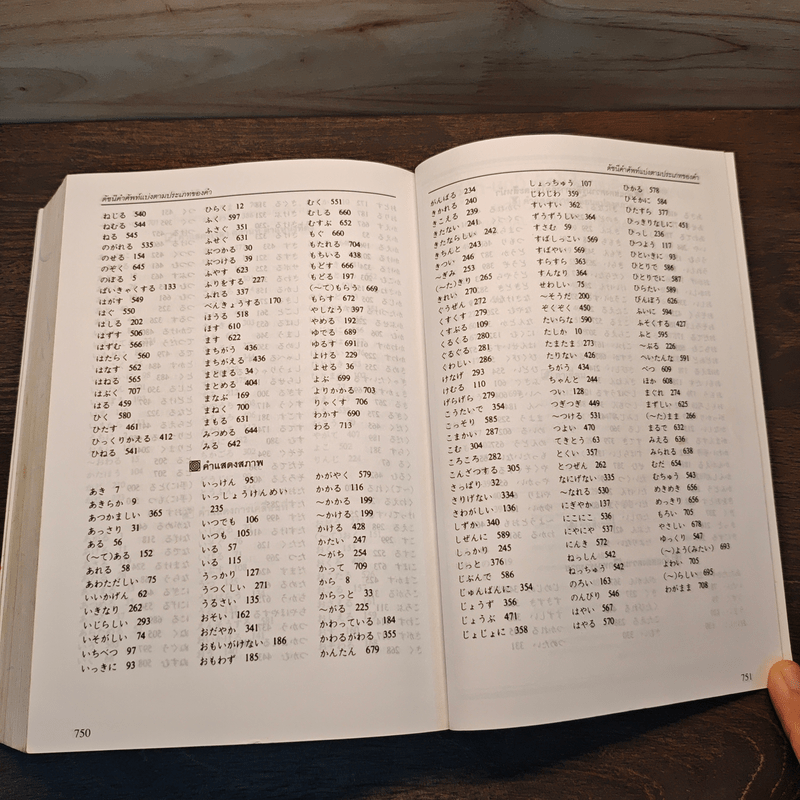 ดัชนีคำศัพท์แบ่งตามประเภทของคำ
ねじる 540
ねむる 544
ねる 545
のがれる 535
のせる 154
のぞく 645
のぼる 5
ばいきゃくする 133
はがす 549
はぐ 550
はしる 202
はずす 506
はずむ 566
はたらく 560
はなす 562
はねる 565
はぶく 707
はる 459
ひく 580
ひたす 461
ひっくりかえる 412
ひねる 541
ひらく 12
ふく 597
ふさぐ 351
ふせぐ 631
ぶつかる 30
ぶつける 39
ふやす 623
ふりをする 227
ふれる 337
べんきょうする 170
ほうる 518
ほす 610
ます 622
まちがう 436
まちがえる 436
まとまる 34
まとめる 404
まなぶ 169
まねく 700
まもる 631
みつめる 644
みる 642
むく 551
むしる 660
むすぶ 652
もぐ 660
もたれる 704
もちいる 438
もどす 666
もどる 197
(〜て)もらう 669
もらす 672
やしなう 397
やめる 192
ゆでる 689
ゆるす 691
よける 229
よせる 36
よぶ 699
よりかかる 703
りゃくす 706
わかす 690
わる 713
คำแสดงสภาพ
あき 7
あきらか 9
あつかましい 365
あっさり 31
ある 56
(〜て)ある 152
あれる 58
あわただしい 75
いいかげん 62
いきなり 262
いじらしい 293
いそがしい 74
いちべつ 97
いっきに 93
いっけん 95
いっしょうけんめい
235
いつでも 106
いつも 105
いる 57
いる 115
うっかり 127
うつくしい 271
うるさい 135
おそい 162
おだやか 341
おもいがけない 186
おもわず 185
かがやく 579
かかる 116
〜かかる 199
〜かける 199
かける 428
かたい 247
〜がち 254
かって 709
から 8
からっと 33
〜がる 225
かわっている 184
かわるがわる 355
かんたん 679
750
ดัชนีคำศัพท์แบ่งตามประเภทของคำ
がんばる 234
きかれる 240
きこえる 239
きたない 241
きたならしい 242
きちんと 243
きつい 246
〜ぎみ 253
(〜た)きり 265
きれい 270
ぐうぜん 272
くすくす 279
くすぶる 109
くるくる 280
ぐるぐる 281
くわしい 286
けなげ 293
けむる 110
げらげら 279
こうたいで 354
こっそり 585
こまかい 287
こむ 304
ころころ 282
こんざつする 305
さっぱり 32
さりげない 334
さわがしい 136
しずか 340
しぜんに 589
しっかり 245
じっと 376
じぶんで 586
じゅんばんに 354
じょうず 356
じょうぶ 471
じょじょに 358
しょっちゅう 107
じわじわ 361
すいすい 362
ずうずうしい 364
すさむ 59
すばしっこい 569
すばやい 569
すらすら 363
すんなり 364
せわしい 75
〜そうだ 200
ぞくぞく 450
たいらな 590
たしか 10
たまたま 273
たりない 426
ちがう 434
ちゃんと 244
つい 128
つぎつぎ 449
〜つける 531
つよい 470
てきとう 63
とくい 357
とつぜん 262
なにげない 335
〜なれる 530
にぎやか 137
にこにこ 536
にやにや 537
にんき 572
ねっしん 542
ねっちゅう 542
のろい 163
のんびり 546
はやい 567
はやる 570
ひかる 578
ひそかに 584
ひたすら 377
ひっきりなしに 451
ひっし 236
ひつよう 117
ひといきに 93
ひとりで 586
ひとりでに 587
ひらたい 589
びんぼう 626
ふいに 594
ふそくする 427
ふと 595
〜ぶる 226
へいたんな 591
べつ 609
ほか 608
まぐれ 274
まずしい 625
(〜た)まま 266
まるで 632
みえる 636
みられる 638
むだ 654
むちゅう 543
めきめき 656
めっきり 656
もろい 705
やさしい 678
ゆっくり 547
(〜)よう(みたい) 693
よわい 705
(〜)らしい 695
わがまま 708
751